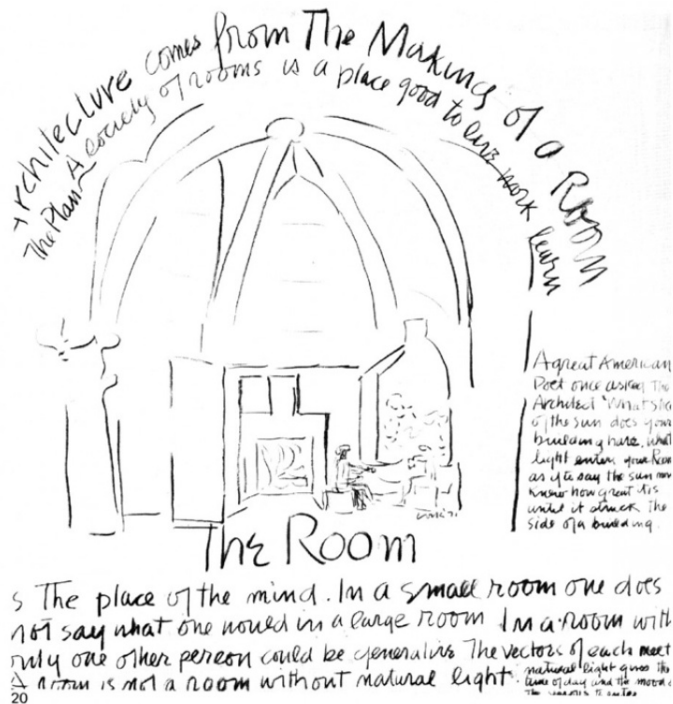 Architecture comes from The Making of a Room
The Plan A society of rooms is a place good to live work learn
A great American
Poet once asked The
Architect 'What slice
of the sun does your
building have. what
light enters your Room
as if to say the sun never
knew how great it is
until it struck The
side of a building.
The Room
s The place of the mind. In a small room one does
not say what one would in a large room In a room with
only one other person could be generative The vectors of each meet
A room is not a room without natural light
natural light gives the
time of day and the mood
The seasons to enter
20